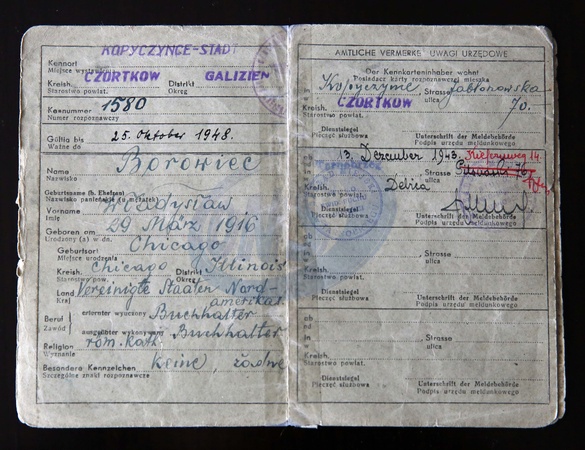 KOPYCZYNCE-STADT
Kennort
Miejsce wystawienia
CZORTKOW GALIZIEN
Kreish. Distrikt
Starostwo powiat. Okręg
Kennummer 1580
Numer rozpoznawczy
Gültig bis 25. Oktober 1948.
Ważne do
Borowiec
Name
Nazwisko
Geburtsname (b. Ehefrau)
Nazwisko panieńskie (u mężatki)
Vorname Władysław
Imię
29 März 1916
Geboren am
Urodzony (a) w dn.
Chicago
Geburtsort
Miejsce urodzenia
Kreish. Chicago Distrikt Illinois
Starostwo pow. Okręg
Land Vereinigte Staaten Nord-
Kraj amerikas
Beruf erlernter wyuczony Buchhalter
Zawód ausgeübter wykonywany Buchhalter
Religion röm. kath.
Wyznanie
Besondere Kennzeichen keine, żadne
Szczególne znaki rozpoznawcze
AMTLICHE VERMERKE UWAGI URZĘDOWE
Der Kennkarteninhaber wohnt
Posiadacz karty rozpoznawczej mieszka
in Kopyczynce, Strasse Jabłonowska
w ulica
Kreish. CZORTKOW 70.
Starostwo powiat.
Dienstsiegel Unterschrift der Meldebehörde
Pieczęć służbowa Podpis urzędu meldunkowego
13. Dezember 1943. Kiefernweg 14.
Strasse
ulica
Kreish. Debica
Starostwo powiat.
Dienstsiegel
Pieczęć służbowa
Unterschrift der Meldebehörde
Podpis urzędu meldunkowego
ab
od
in , Strasse
w ulica
Kreish.
Starostwo powiat.
Dienstsiegel Unterschrift der Meldebehörde
Pieczęć służbowa Podpis urzędu meldunkowego
ab
od
in , Strasse
w ulica
Kreish.
Starostwo powiat.
Dienstsiegel Unterschrift der Meldebehörde
Pieczęć służbowa Podpis urzędu meldunkowego